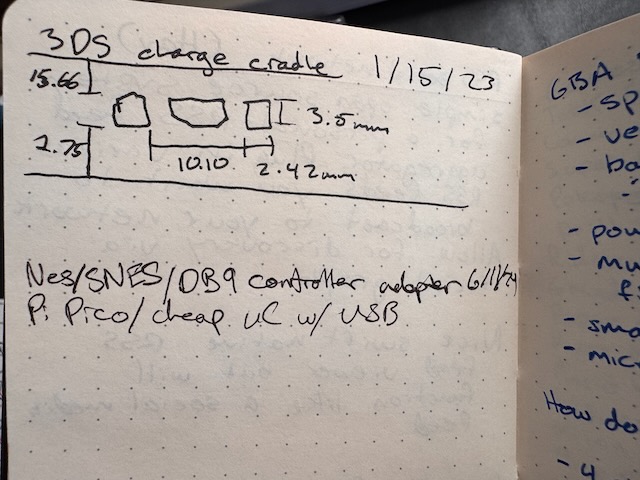 3DS charge cradle 1/15/23
15.66
3.5mm
2.75
10.10
2.42mm
Nes/SNES/DB9 controller adapter 6/11/24
Pi Pico/cheap uC w/ USB
GBA
- SP
- ve
- ba
-
- pow
- mu
fi
- sma
- mic
How do
- 4